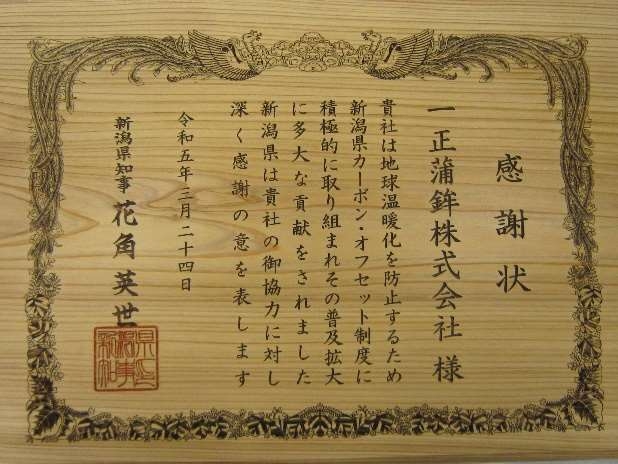 感謝状
一正蒲鉾株式会社 様
貴社は地球温暖化を防止するため
新潟県カーボン・オフセット制度に
積極的に取り組まれその普及拡大
に多大な貢献をされました
新潟県は貴社の御協力に対し
深く感謝の意を表します
令和五年三月二十四日
新潟県知事 花角英世